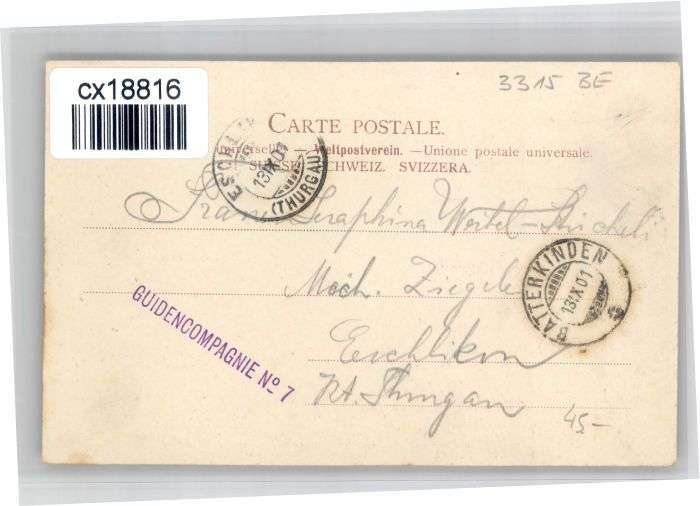 cx18816
3315 BE
CARTE POSTALE.
— Weltpostverein. — Unione postale universale.
SCHWEIZ. SVIZZERA.
13.IX.01
(THURGAU)
Frau Seraphina
Mech. Ziegelei
BÄTTERKINDEN
13.IX.01
Eschlikon
Kt. Thurgau
GUIDENCOMPAGNIE No 7
45.-